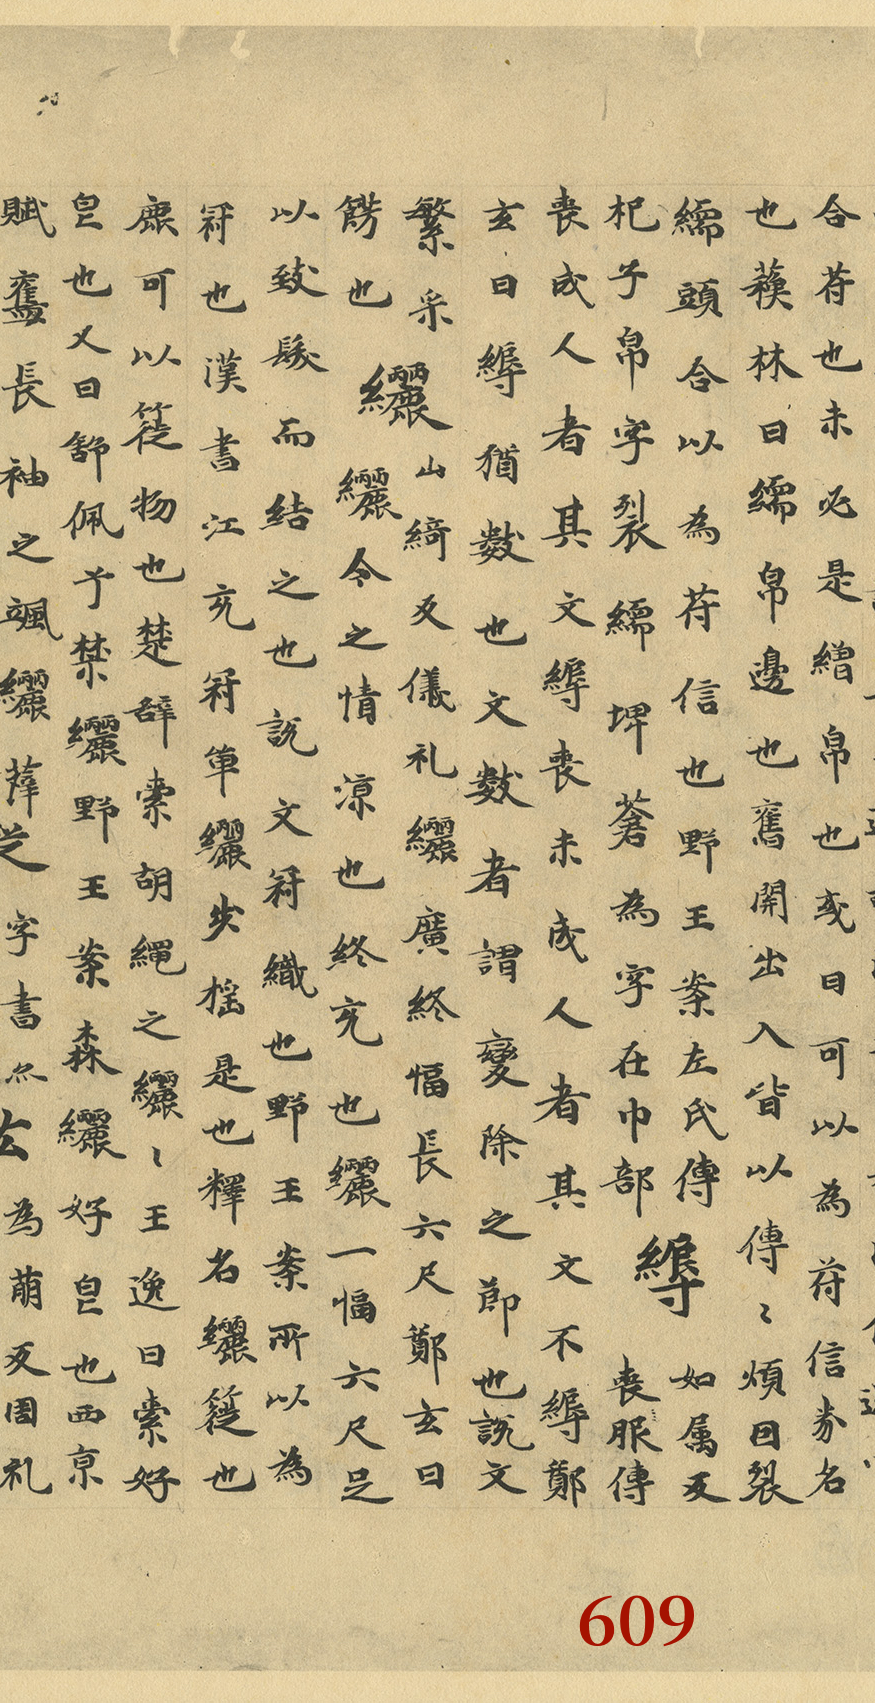 合苻也未必是繒帛也或曰可以為苻信券名
也蘓林曰繻帛邊也舊開出入皆以傳〻煩因裂
繻頭合以為苻信也野王案左氏傳
杞子帛字裂繻埤蒼為字在巾部
縟
如属反
喪服傳
喪成人者其文縟喪未成人者其文不縟鄭
玄曰縟猶數也文數者謂變除之節也說文
繁采
纚
山綺反儀礼纚廣終幅長六尺鄭玄曰
餝也
纚令之情凉也終充也纚一幅六尺足
以致髮而結之也說文冠織也野王案所以為
冠也漢書江充冠單纚步摇是也釋名纚簁也
麁可以簁物也楚辭索胡繩之纚〻王逸曰索好
皃也又曰舒佩兮綝纚野王案森纚好皃也西京
賦奮長袖之颯纚薛字書亦為萠反周礼
609